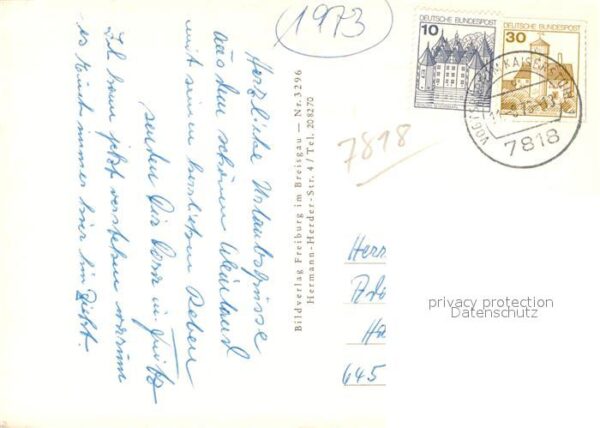 1973
10
DEUTSCHE BUNDESPOST
30
DEUTSCHE BUNDESPOST
VOGTSBURG IM KAISERSTUHL
7818
7818
Herzliche Urlaubsgrüsse
aus dem schönen Weinland
mit seinen herrlichen Reben
senden Dir Dora und Fritz
Ich kann jetzt verstehen warum
es immer hier
Bildverlag Freiburg im Breisgau — Nr. 3296
Hermann-Herder-Str. 4 / Tel. 208270
Herr
645
privacy protection
Datenschutz